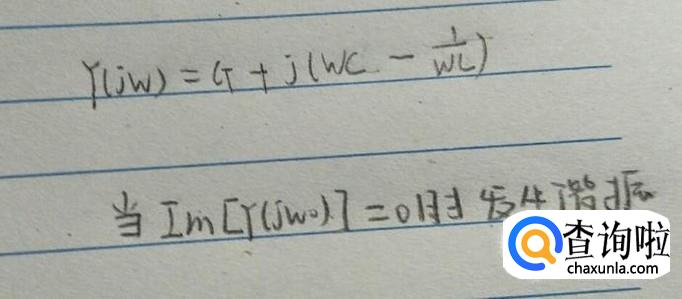 Y(jw) = G + j(wC - \frac{1}{wL})
当 Im[Y(jw₀)] = 0时发生谐振
查询啦
chaxunla.com